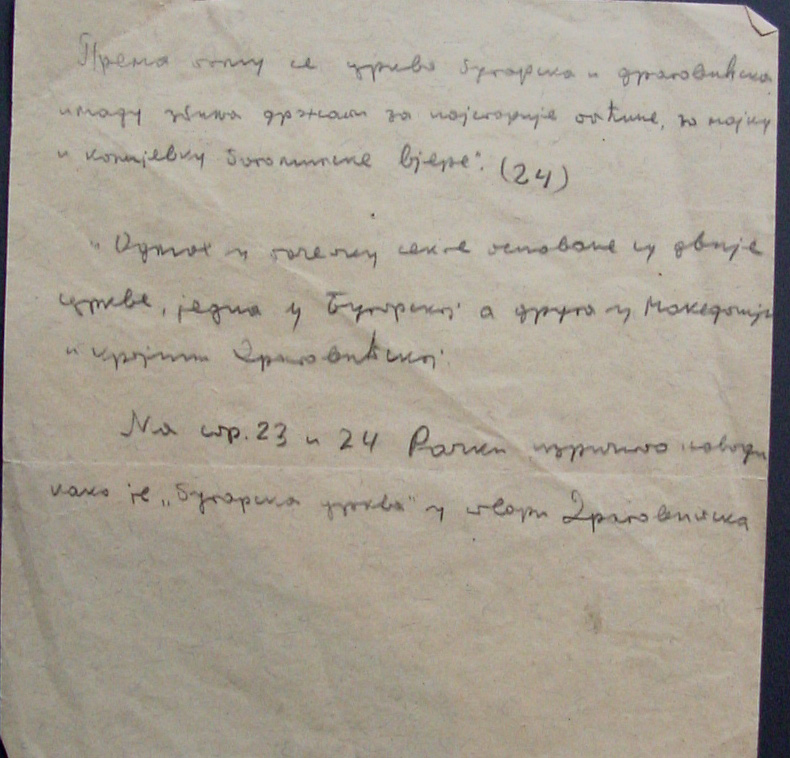 Према тому се црква бугарска и драговићска
имаду збиља држати за најстарије општине, за мајку
и колијевку богомилске вјере". (24)
"Одмах у почетку секте основане су двије
цркве, једна у Бугарској а друга у Македонији
и крајини Драговићској
На стр. 23 и 24 Рачки изричито наводи
како је "бугарска црква" у ствари Драговићска